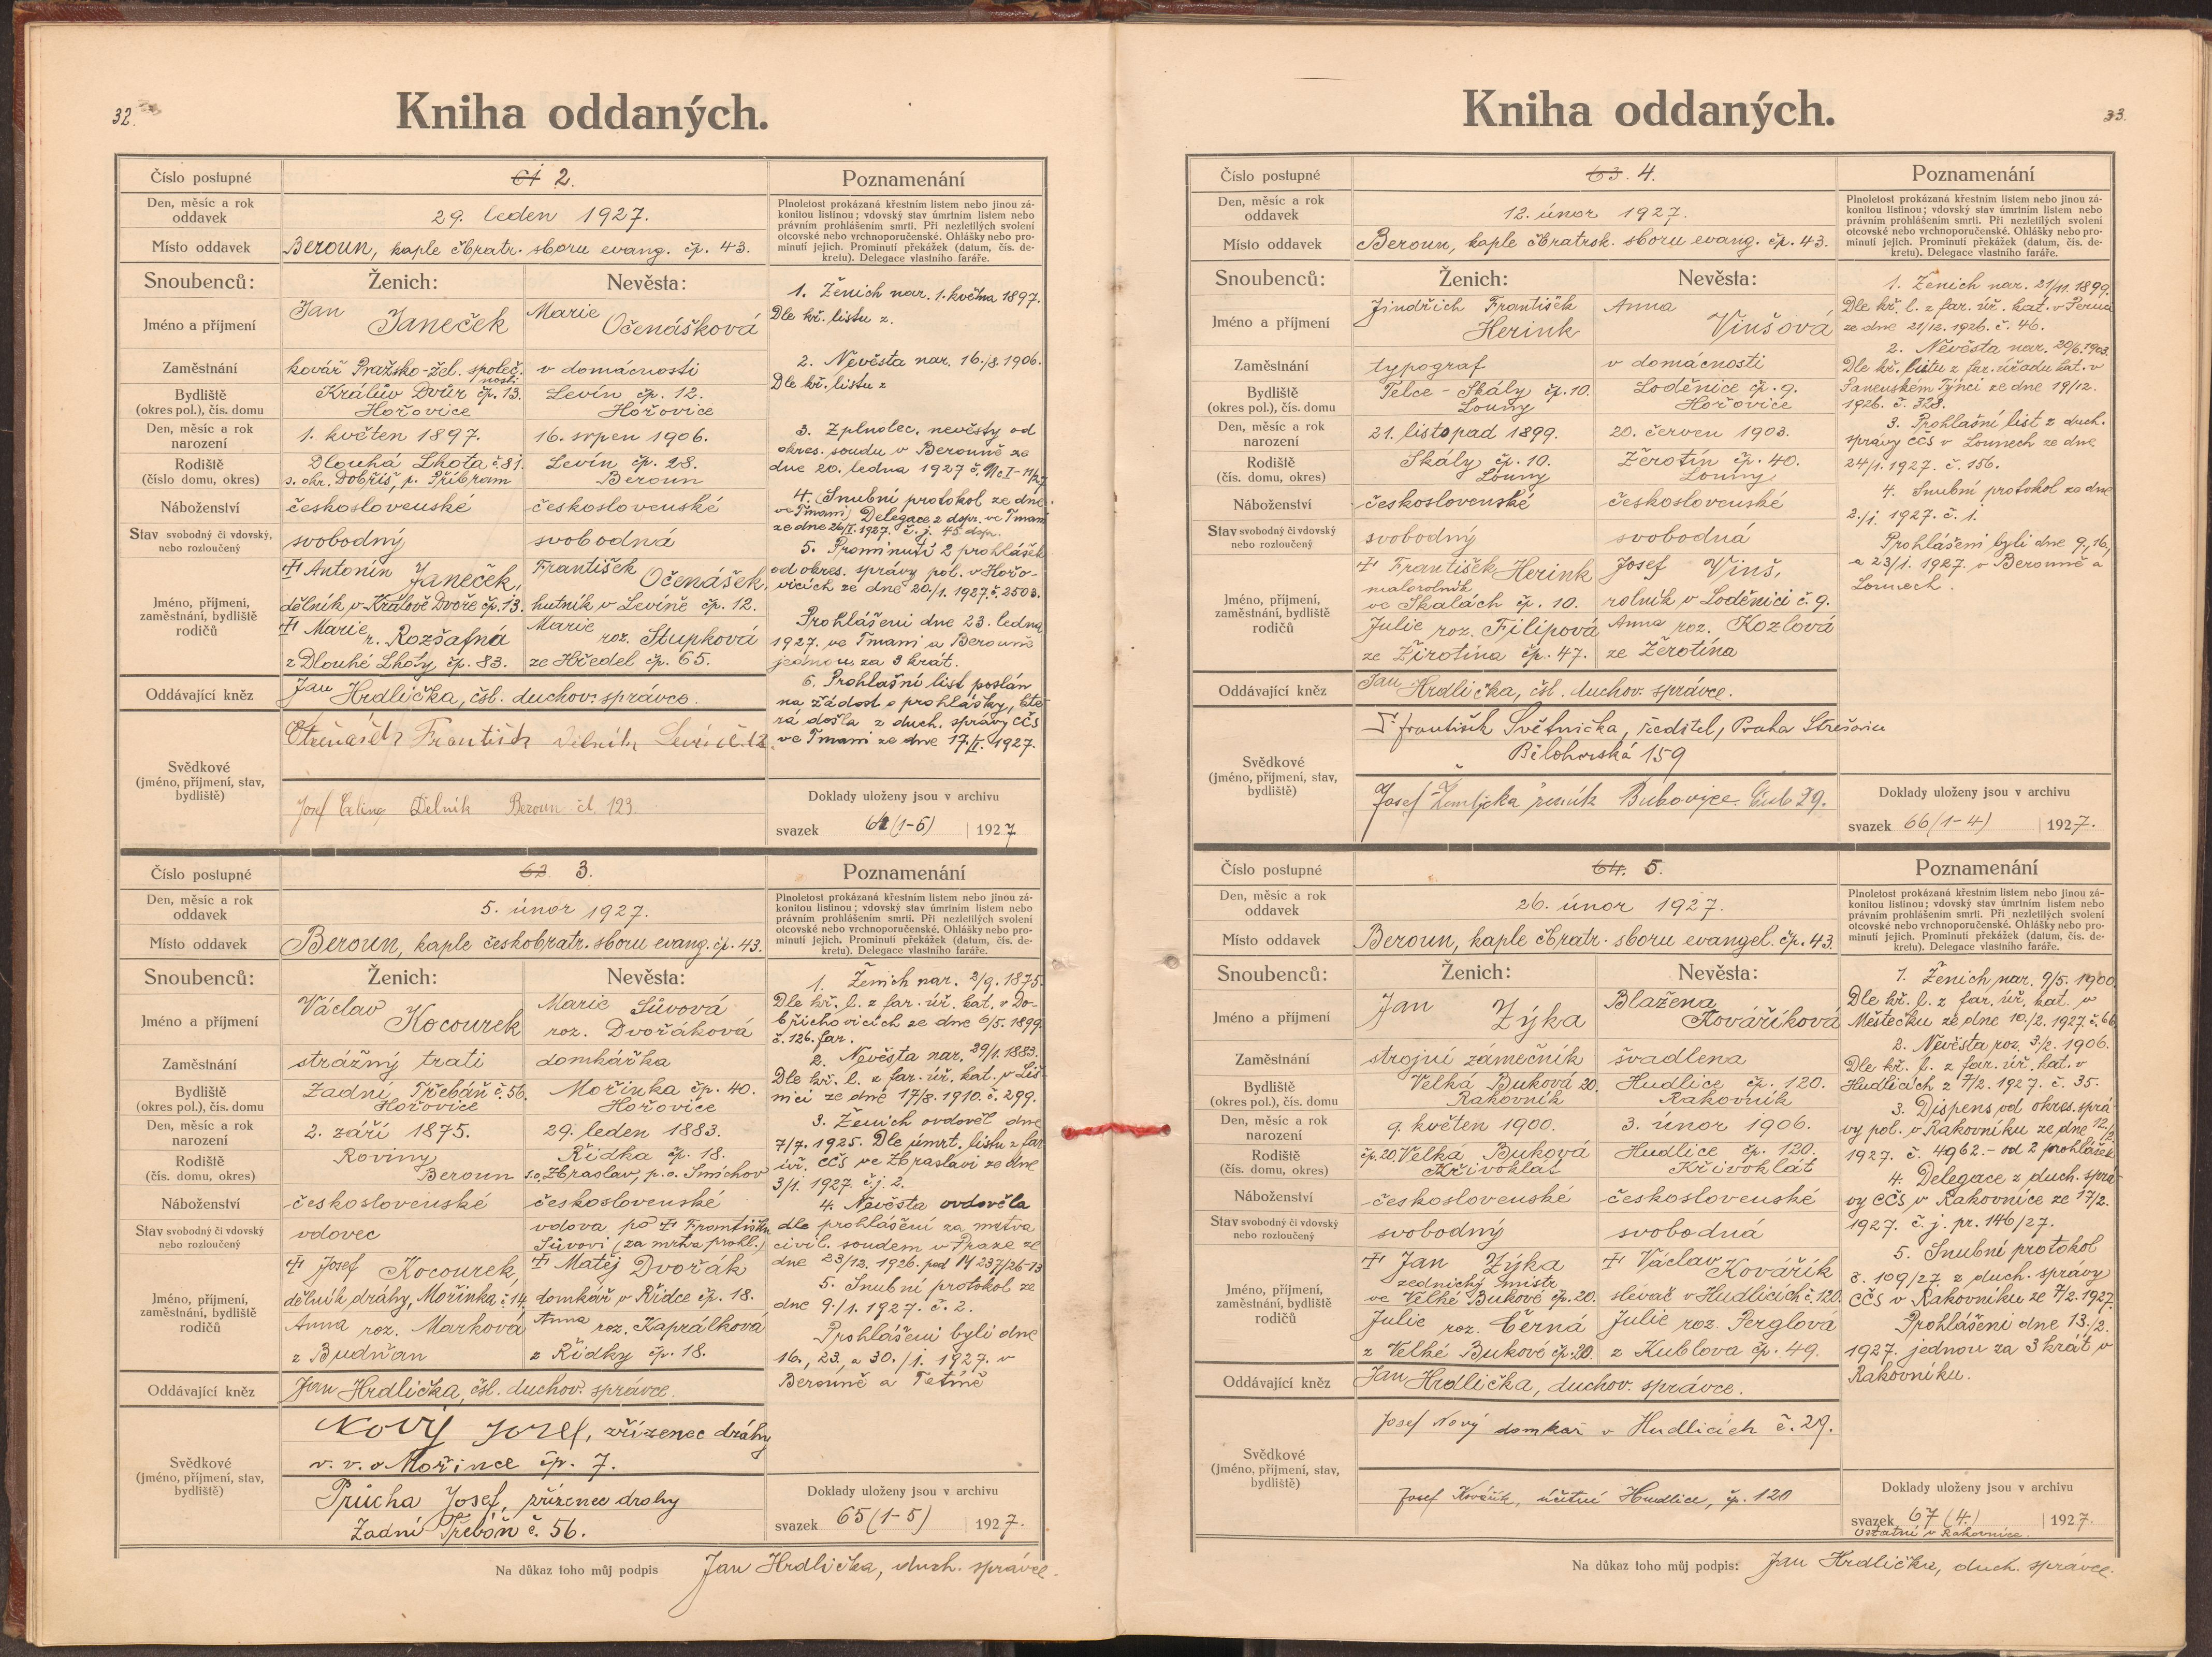 32.
Kniha oddaných.
Číslo postupné
61 2.
Poznamenání
Den, měsíc a rok
oddavek
29. leden 1927.
Plnoletost prokázaná křestním listem nebo jinou zá-
konitou listinou; vdovský stav úmrtním listem nebo
právním prohlášením smrti. Při nezletilých svolení
otcovské nebo vrchnoporučenské. Ohlášky nebo pro-
minutí jejich. Prominutí překážek (datum, čís. de-
kretu). Delegace vlastního faráře.
Místo oddavek
Beroun, kaple čbratr. sboru evang. čp. 43.
Snoubenců:
Ženich:
Nevěsta:
Jméno a příjmení
Jan
Janeček
Marie
Očenášková
Zaměstnání
kovář Pražsko-žel. společ.
nosti
v domácnosti
Bydliště
(okres pol.), čís. domu
Králův Dvůr čp. 13.
Hořovice
Levín čp. 12.
Hořovice
Den, měsíc a rok
narození
1. květen 1897.
16. srpen 1906.
Rodiště
(číslo domu, okres)
Dlouhá Lhota č. 81.
s. okr. Dobříš, p. Příbram
Levín čp. 28.
Beroun
Náboženství
československé
československé
Stav svobodný či vdovský,
nebo rozloučený
svobodný
svobodná
Jméno, příjmení,
zaměstnání, bydliště
rodičů
Antonín Janeček,
dělník v Králově Dvoře čp. 13.
Marie
r. Rozšafná
z Dlouhé Lhoty čp. 83.
František
Očenášek,
hutník v Levíně čp. 12.
Marie
roz. Stupková
ze Hředel čp. 65.
Oddávající kněz
Jan Hrdlička, čsl. duchov. správce.
Svědkové
(jméno, příjmení, stav,
bydliště)
František Dělník Levín č. 12.
Josef Dělník Beroun čd. 123
1. Ženich nar. 1. května 1897.
Dle kř. listu z.
2. Nevěsta nar. 16./8. 1906.
Dle kř. listu z
3. Zplnolec. nevěsty od
okres. soudu v Berouně ze
dne 20. ledna 1927 č.
4. Snubní protokol ze dne
ve Tmani) Delegace z dopr. ve Tmani
ze dne 26/I. 1927. č. j. 45 dop.
5. Prominutí 2 prohlášek
od okres. správy pol. v Hořo-
vicích ze dne 20./1. 1927. č. 2503.
Prohlášeni dne 23. ledna
1927. ve Tmani a Berouně
jednou za 3 krát.
6. Prohlašní list poslán
na žádost o prohlášky, kte-
rá došla z duch. správy CČS
ve Tmani ze dne 17./I. 1927.
Doklady uloženy jsou v archivu
svazek 64 (1-6) 1927
Číslo postupné
62 3.
Poznamenání
Den, měsíc a rok
oddavek
5. únor 1927.
Plnoletost prokázaná křestním listem nebo jinou zá-
konitou listinou; vdovský stav úmrtním listem nebo
právním prohlášením smrti. Při nezletilých svolení
otcovské nebo vrchnoporučenské. Ohlášky nebo pro-
minutí jejich. Prominutí překážek (datum, čís. de-
kretu). Delegace vlastního faráře.
Místo oddavek
Beroun, kaple českobratr. sboru evang. čp. 43.
Snoubenců:
Ženich:
Nevěsta:
Jméno a příjmení
Václav
Kocourek
Marie Sůvová
roz. Dvořáková
Zaměstnání
strážný trati
domkářka
Bydliště
(okres pol.), čís. domu
Zadní Třebáň č. 56.
Hořovice
Mořinka čp. 40.
Hořovice
Den, měsíc a rok
narození
2. září 1875.
29. leden 1883.
Rodiště
(čís. domu, okres)
Roviny
Beroun
Řidka čp. 18.
s. o. Zbraslav, p. o. Smíchov
Náboženství
československé
československé
Stav svobodný či vdovský
nebo rozloučený
vdovec
vdova po Františku
Sůvovi (za mrtva prohl.)
Jméno, příjmení,
zaměstnání, bydliště
rodičů
Josef Kocourek,
dělník dráhy, Mořinka č. 14.
Anna roz. Marková
z Budňan
Matěj Dvořák
domkář v Řidce čp. 18.
Anna roz. Kaprálková
z Řidky čp. 18.
Oddávající kněz
Jan Hrdlička, čsl. duchov. správce.
Svědkové
(jméno, příjmení, stav,
bydliště)
Nový Josef, zřízenec dráhy
v. v. v Mořince čp. 7.
Průcha Josef, zřízenec drahy
Zadní Třebáň č. 56.
1. Ženich nar. 2/9. 1875.
Dle kř. l. z far. úř. kat. v Do-
břichovicích ze dne 6/5. 1899.
č. 126. far.
2. Nevěsta nar. 29/1. 1883.
Dle kř. l. z far. úř. kat. v Liš-
nici ze dne 17/8. 1910. č. 299.
3. Ženich ovdověl dne
7/7. 1925. Dle úmrt. listu z far.
úř. CČS ve Zbraslavi ze dne
3/1. 1927 č. j. 2.
4. Nevěsta ovdověla
dle prohlášení za mrtva
civil. soudem v Praze ze
dne 23/12. 1926. pod 14 237/26-13
5. Snubní protokol ze
dne 9./1. 1927. č. 2.
Prohlášeni byli dne
16., 23. a 30./1. 1927. v
Berouně a Tetíně
Doklady uloženy jsou v archivu
svazek 65 (1-5) 1927.
Na důkaz toho můj podpis Jan Hrdlička, duch. správce.
33.
Kniha oddaných.
Číslo postupné
63. 4.
Poznamenání
Den, měsíc a rok
oddavek
12. únor 1927.
Plnoletost prokázaná křestním listem nebo jinou zá-
konitou listinou; vdovský stav úmrtním listem nebo
právním prohlášením smrti. Při nezletilých svolení
otcovské nebo vrchnoporučenské. Ohlášky nebo pro-
minutí jejich. Prominutí překážek (datum, čís. de-
kretu). Delegace vlastního faráře.
Místo oddavek
Beroun, kaple čbratrsk. sboru evang. čp. 43.
Snoubenců:
Ženich:
Nevěsta:
Jméno a příjmení
Jindřich František
Herink
Anna
Vinšová
Zaměstnání
typograf
v domácnosti
Bydliště
(okres pol.), čís. domu
Telce - Skály čp. 10.
Louny
Loděnice čp. 9.
Hořovice
Den, měsíc a rok
narození
21. listopad 1899.
20. červen 1903.
Rodiště
(čís. domu, okres)
Skály čp. 10.
Louny
Žerotín čp. 40.
Louny
Náboženství
československé
československé
Stav svobodný či vdovský
nebo rozloučený
svobodný
svobodná
Jméno, příjmení,
zaměstnání, bydliště
rodičů
František Herink
malorolník
ve Skalách čp. 10.
Julie roz. Filipová
ze Žirotína čp. 47.
Josef Vinš,
rolník v Loděnici č. 9.
Anna roz. Kozlová
ze Žerotína
Oddávající kněz
Jan Hrdlička, čsl. duchov. správce.
Svědkové
(jméno, příjmení, stav,
bydliště)
František Světnička, ředitel, Praha Střešovice
Bělohorská 159
Josef Žemlička řezník Bubovice. 29.
1. Ženich nar. 21/11. 1899.
Dle kř. l. z far. úř. kat. v Peruci
ze dne 21/12. 1926. č. 46.
2. Nevěsta nar. 20/6. 1903.
Dle kř. listu z far. úřadu kat. v
Panenském Týnci ze dne 19/12.
1926. č. 328.
3. Prohlašní list z duch.
správy CČS v Lounech ze dne
24/1. 1927. č. 156.
4. Snubní protokol ze dne
2./1. 1927. č. 1.
Prohlášeni byli dne 9., 16.,
a 23/1. 1927. v Berouně a
Lounech.
Doklady uloženy jsou v archivu
svazek 66 (1-4) 1927.
Číslo postupné
64. 5.
Poznamenání
Den, měsíc a rok
oddavek
26. únor 1927.
Plnoletost prokázaná křestním listem nebo jinou zá-
konitou listinou; vdovský stav úmrtním listem nebo
právním prohlášením smrti. Při nezletilých svolení
otcovské nebo vrchnoporučenské. Ohlášky nebo pro-
minutí jejich. Prominutí překážek (datum, čís. de-
kretu). Delegace vlastního faráře.
Místo oddavek
Beroun, kaple čbratr. sboru evangel. čp. 43.
Snoubenců:
Ženich:
Nevěsta:
Jméno a příjmení
Jan
Zýka
Blažena
Kováříková
Zaměstnání
strojní zámečník
švadlena
Bydliště
(okres pol.), čís. domu
Velká Buková 20.
Rakovník
Hudlice čp. 120.
Rakovník
Den, měsíc a rok
narození
9. květen 1900.
3. únor 1906.
Rodiště
(čís. domu, okres)
čp. 20. Velká Buková
Křivoklát
Hudlice čp. 120.
Křivoklát
Náboženství
československé
československé
Stav svobodný či vdovský
nebo rozloučený
svobodný
svobodná
Jméno, příjmení,
zaměstnání, bydliště
rodičů
Jan Zýka
zednický mistr
ve Velké Bukové čp. 20.
Julie roz. Černá
z Velké Bukové čp. 20.
Václav Kovářík
slévač v Hudlicích č. 120.
Julie roz. Perglová
z Kublova čp. 49.
Oddávající kněz
Jan Hrdlička, duchov. správce.
Svědkové
(jméno, příjmení, stav,
bydliště)
Josef Nový domkař v Hudlicích č. 29.
Josef Kovářík, účetní Hudlice, čp. 120
1. Ženich nar. 9/5. 1900.
Dle kř. l. z far. úř. kat. v
Městečku ze dne 10./2. 1927. č. 66.
2. Nevěsta roz. 3/2. 1906.
Dle kř. l. z far. úř. kat. v
Hudlicích z 7/2. 1927. č. 35.
3. Dispens od okres. sprá-
vy pol. v Rakovníku ze dne 12/2.
1927. č. 4962. - od 2 prohlášek
4. Delegace z duch. sprá-
vy CČS v Rakovnice ze 17/2.
1927. č. j. pr. 146/27.
5. Snubní protokol
č. 109/27. z duch. správy
CČS v Rakovníku ze 7/2. 1927.
Prohlášeni dne 13./2.
1927. jednou za 3 krát v
Rakovníku.
Doklady uloženy jsou v archivu
svazek 67 (4.) 1927.
Ostatní v Rakovnice.
Na důkaz toho můj podpis: Jan Hrdlička, duch. správce.